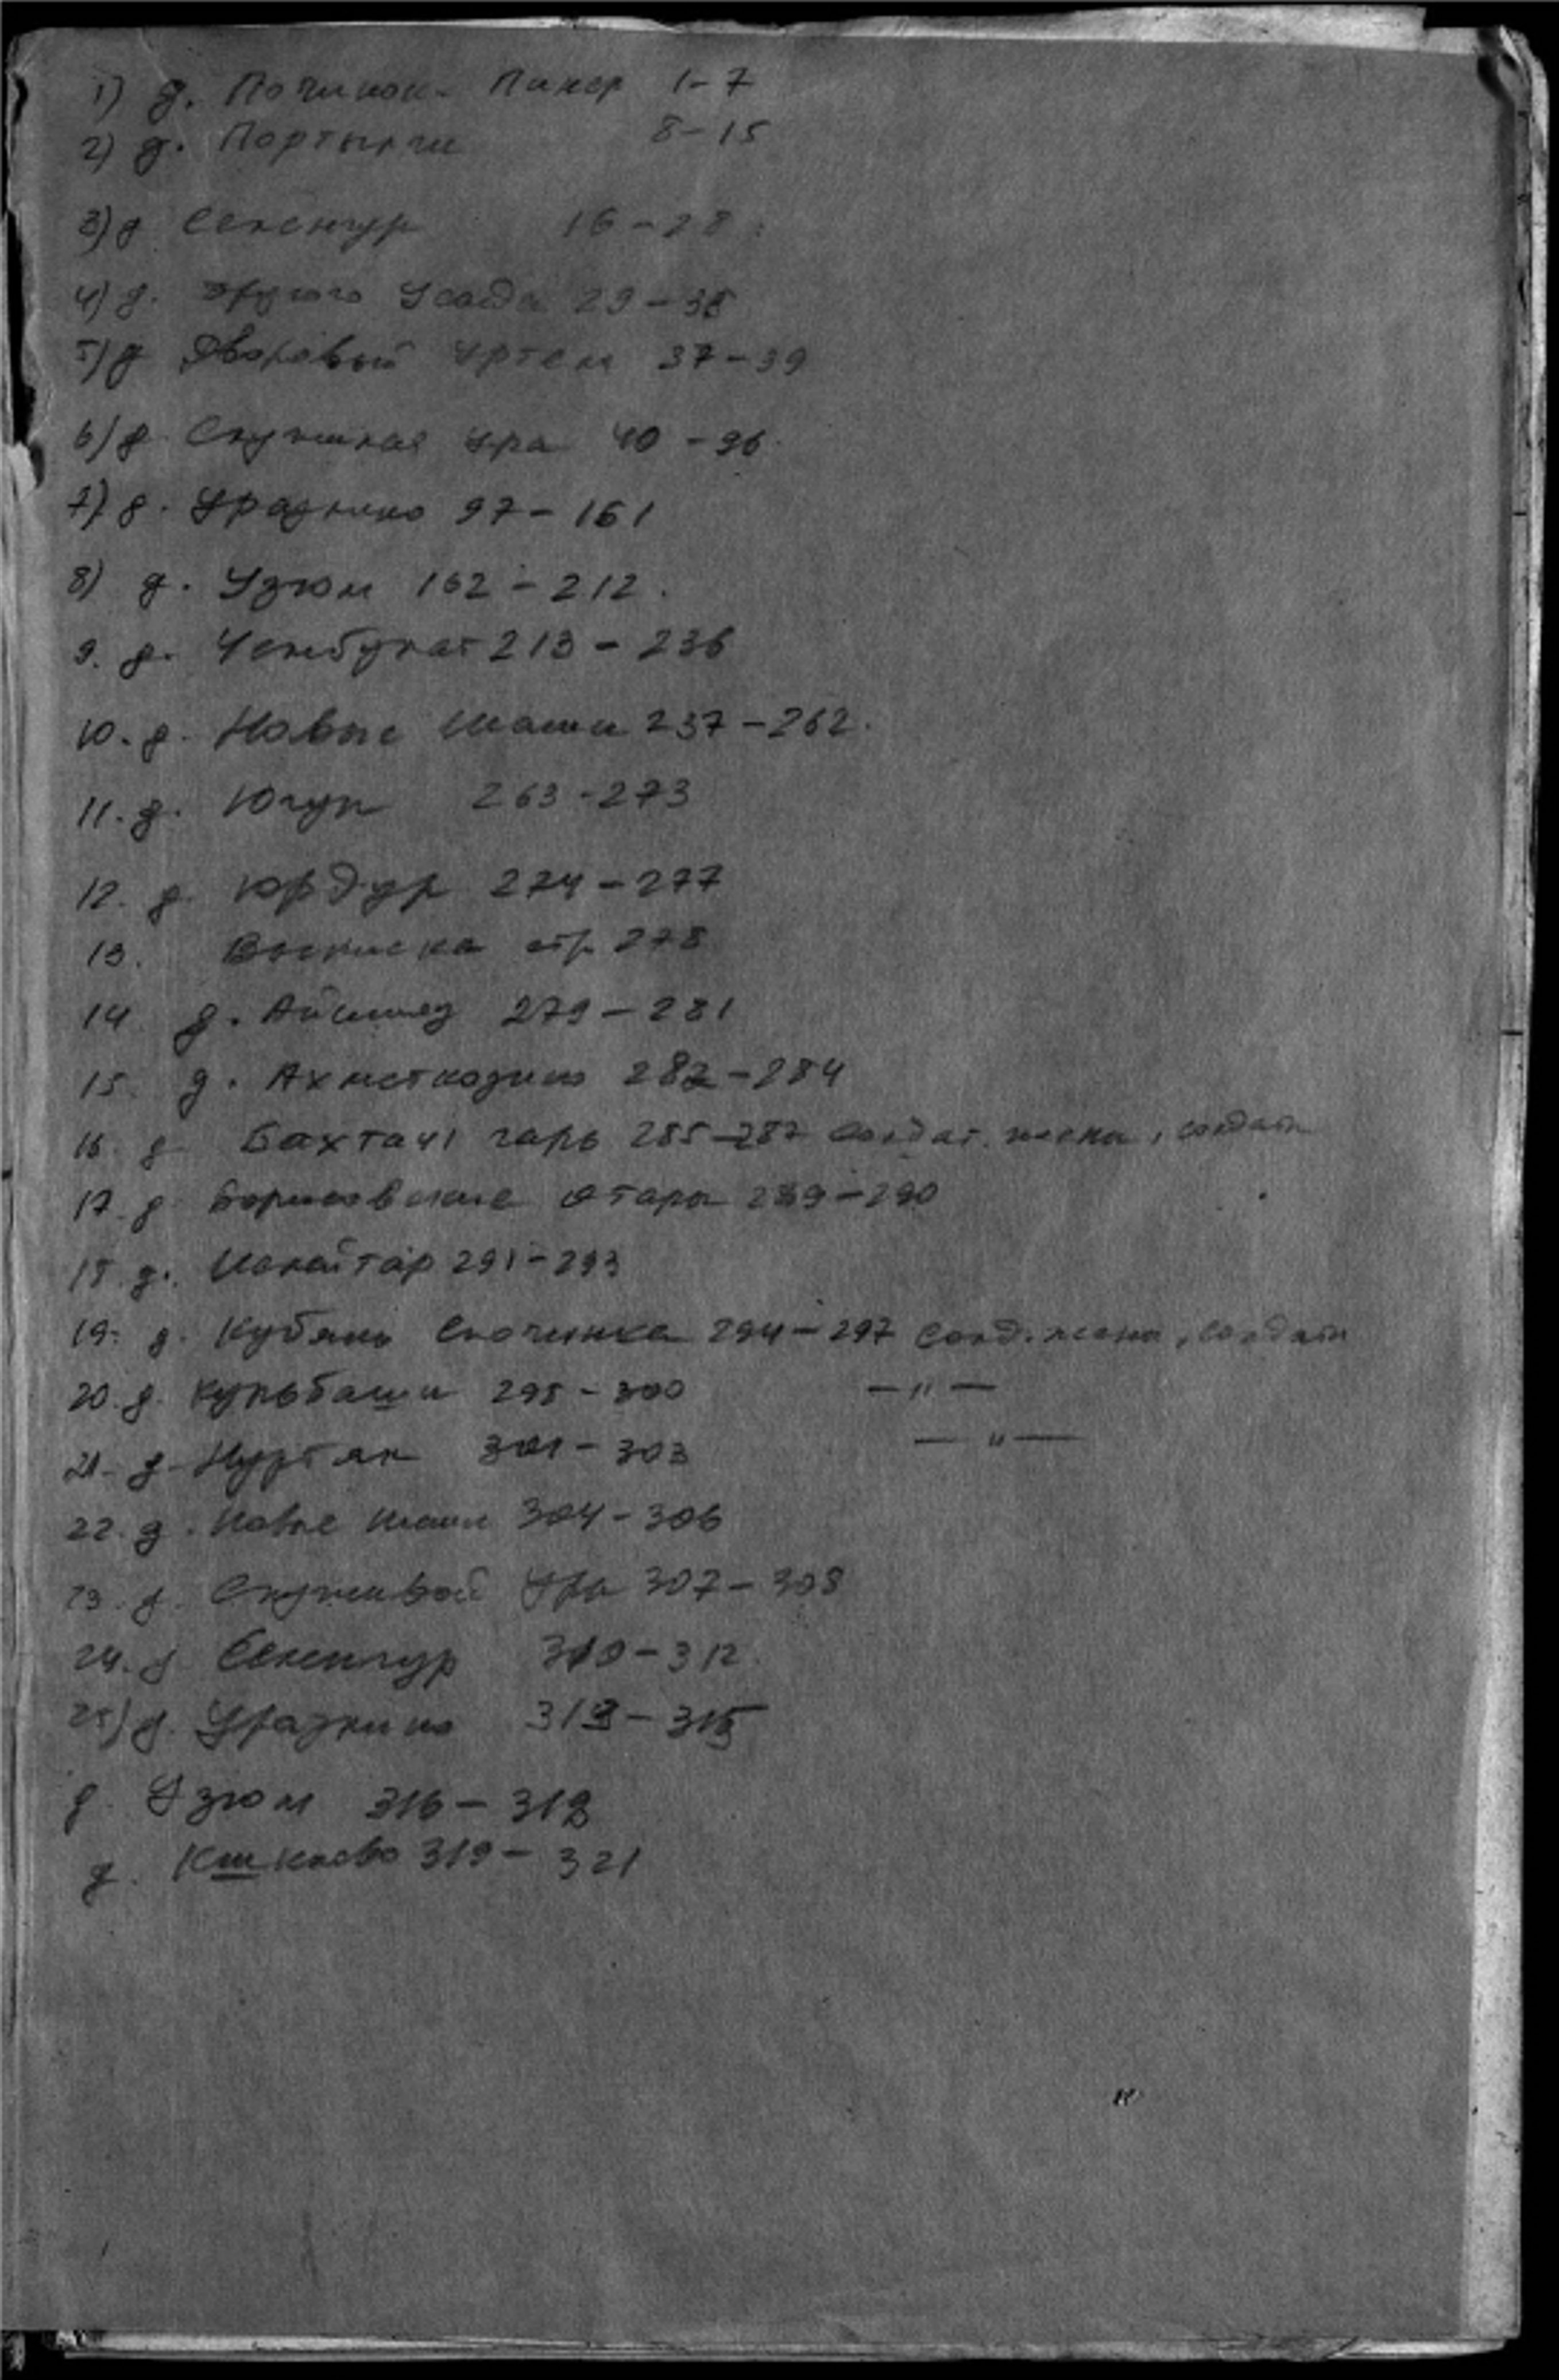 1) д. Починок- Пикер 1-7
2) д. Портянчи 8-15
3) д Секенгур 16-28
4) д. Усада 29-36
5) д Дворовый Уртем 37-39
6) д. Служилая Ура 40-96
7) д. Уразкино 97-161
8) д. Узюм 162-212.
9. д. Чембулат 213-236
10. д. Новые Шаши 237-262.
11. д. Югуп 263-273
12. д. Юрдур 274-277
13. Выписка стр. 278
14 д. Айшияз 279-281
15. д. Ахметкозино 282-284
16. д Бахтачі гарь 285-287 солдат. жены, солдаты
17. д Борисовские Отары 289-290
18. д. Искайтар 291-293
19. д. Кубянь Спочинка 294-297 солд. жены, солдаты
20. д. Кульбаши 298-300 -"-
21. д. Нуртяк 301-303 -"-
22. д. Новые Шаши 304-306
23. д. Служивой Уры 307-308
24. д Секенгур 310-312
25) д. Уразкино 313-315
д. Узюм 316-318
д. Кшклово 319-321